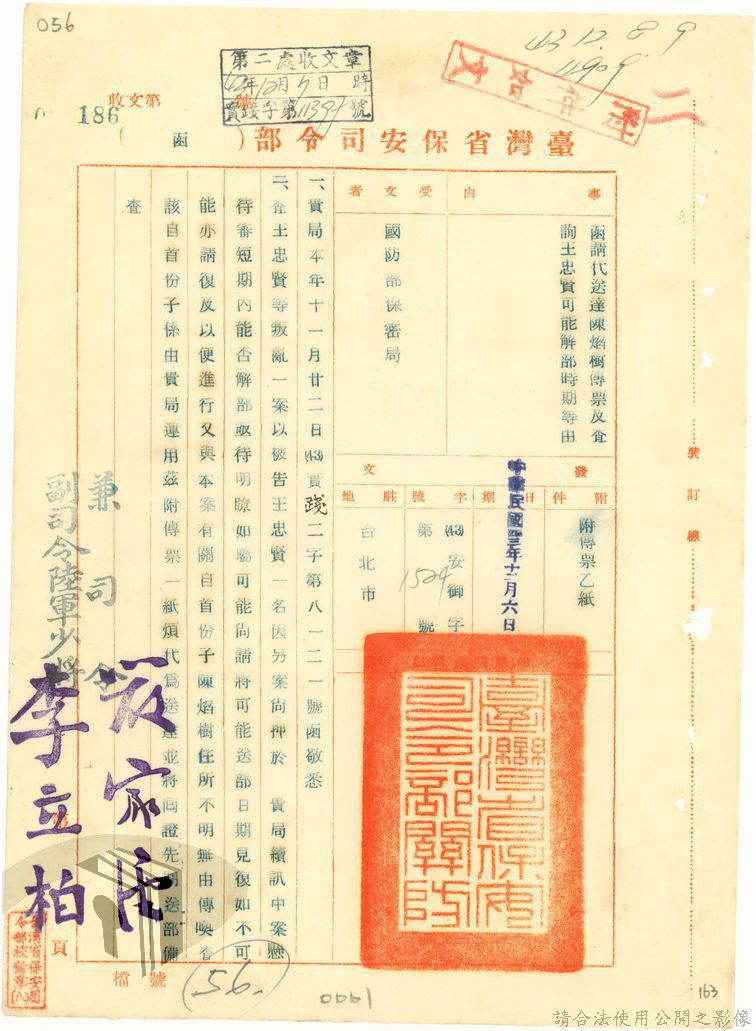 056
43 12. 8 9
第二處收文章
43年12月7日 時
實踐字第11391號
收文第186號
臺灣省保安司令部(函)
事由
函請代送達陳焰樹傳票及查
詢王忠賢可能解部時期等由
受文者
國防部保密局
發文
附件
附傳票乙紙
日期
中華民國四三年十二月六日
字號
(43)安御字
第1524號
駐地
台北市
一、貴局本年十一月廿二日(43)實踐二字第八一二一號函敬悉
二、查王忠賢等叛亂一案以被告王忠賢一名因另案尚押於 貴局續訊中案懸
待審短期內能否解部亟待明瞭如屬可能尚請將可能送部日期見復如不可
能亦請復及以便進行又與本案有關自首份子陳焰樹住所不明無由傳喚查
該自首份子係由貴局運用茲附傳票一紙煩代為送達並將回證先期送部備
查
兼司令
副司令陸軍少將
李立柏
臺灣省保安司令部關防
裝訂線
第 頁
檔號
(56)
0061
163
請合法使用公開之影像